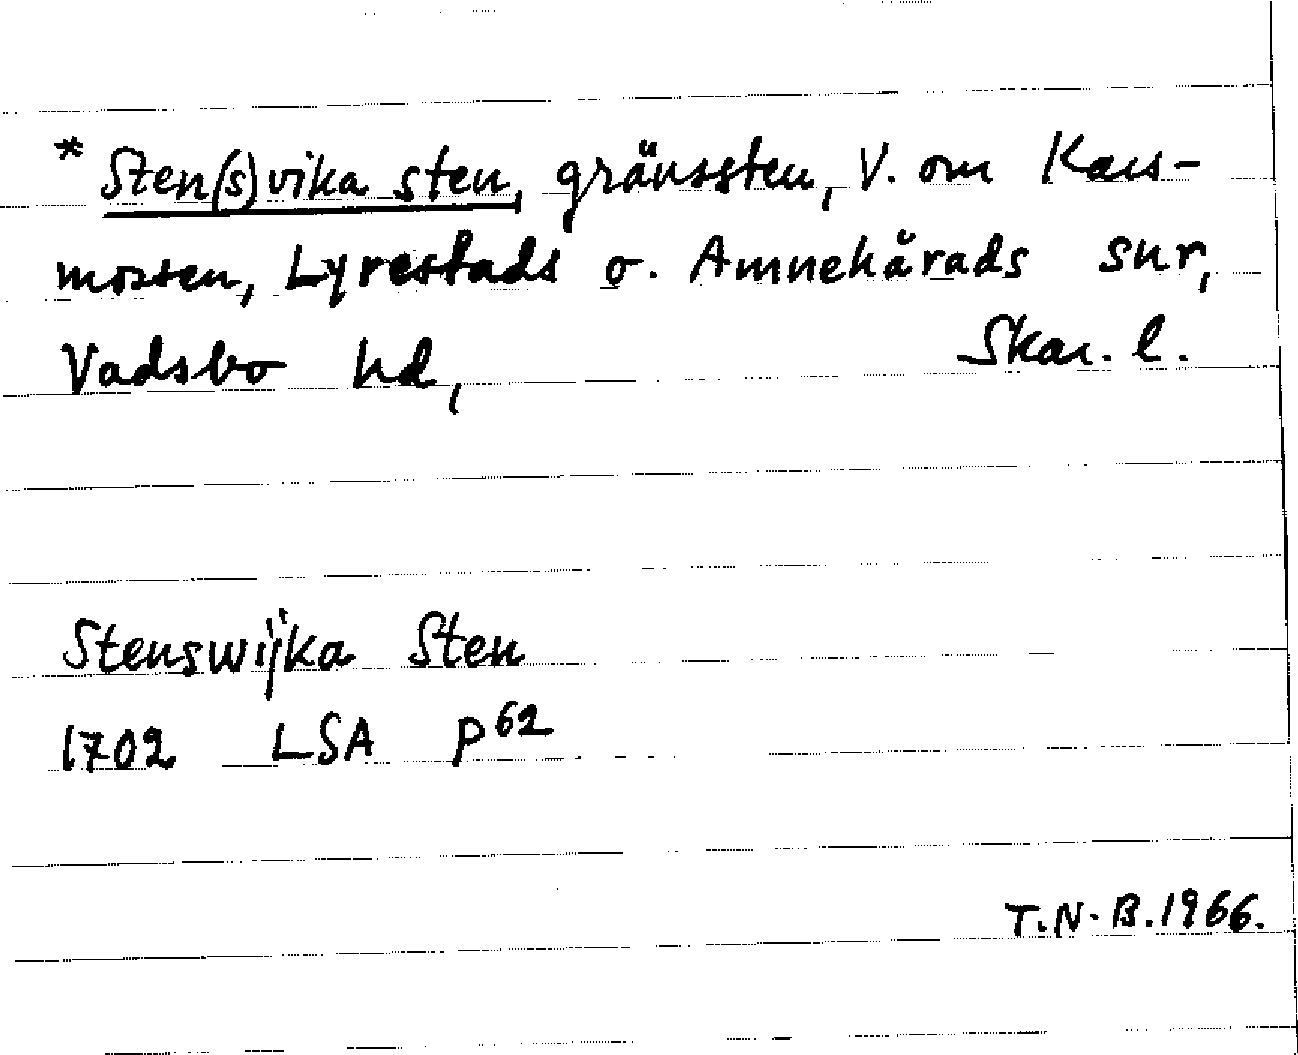 * Sten(s)vika sten, gränssten, V. om Kans-
mossen, Lyrestads o. Amnehärads snr,
Vadsbo hd, Skar. l.
Stenswijka Sten
1702 LSA P62
T.N.B. 1966.